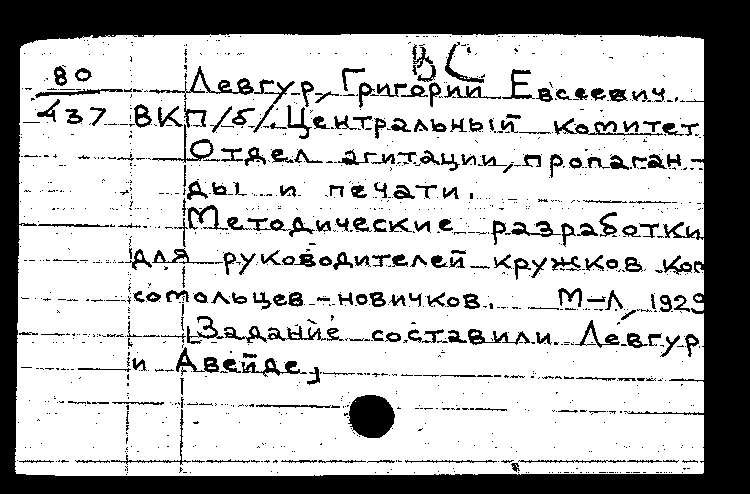 ВС
80 Левгур, Григорий Евсеевич.
437 ВКП/б/. Центральный комитет
Отдел агитации, пропаган-
ды и печати.
Методические разработки
для руководителей кружков ком
сомольцев-новичков. М-Л, 1929
[Задание составили Левгур
и Авейде]